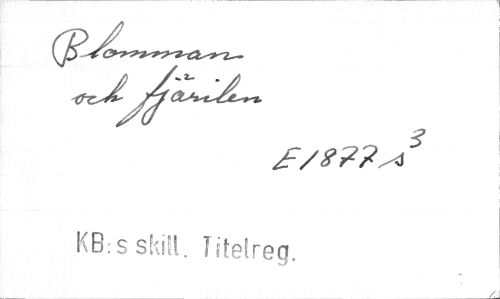 Blomman
och fjärilen
E1877 s³
KB:s skill. Titelreg.